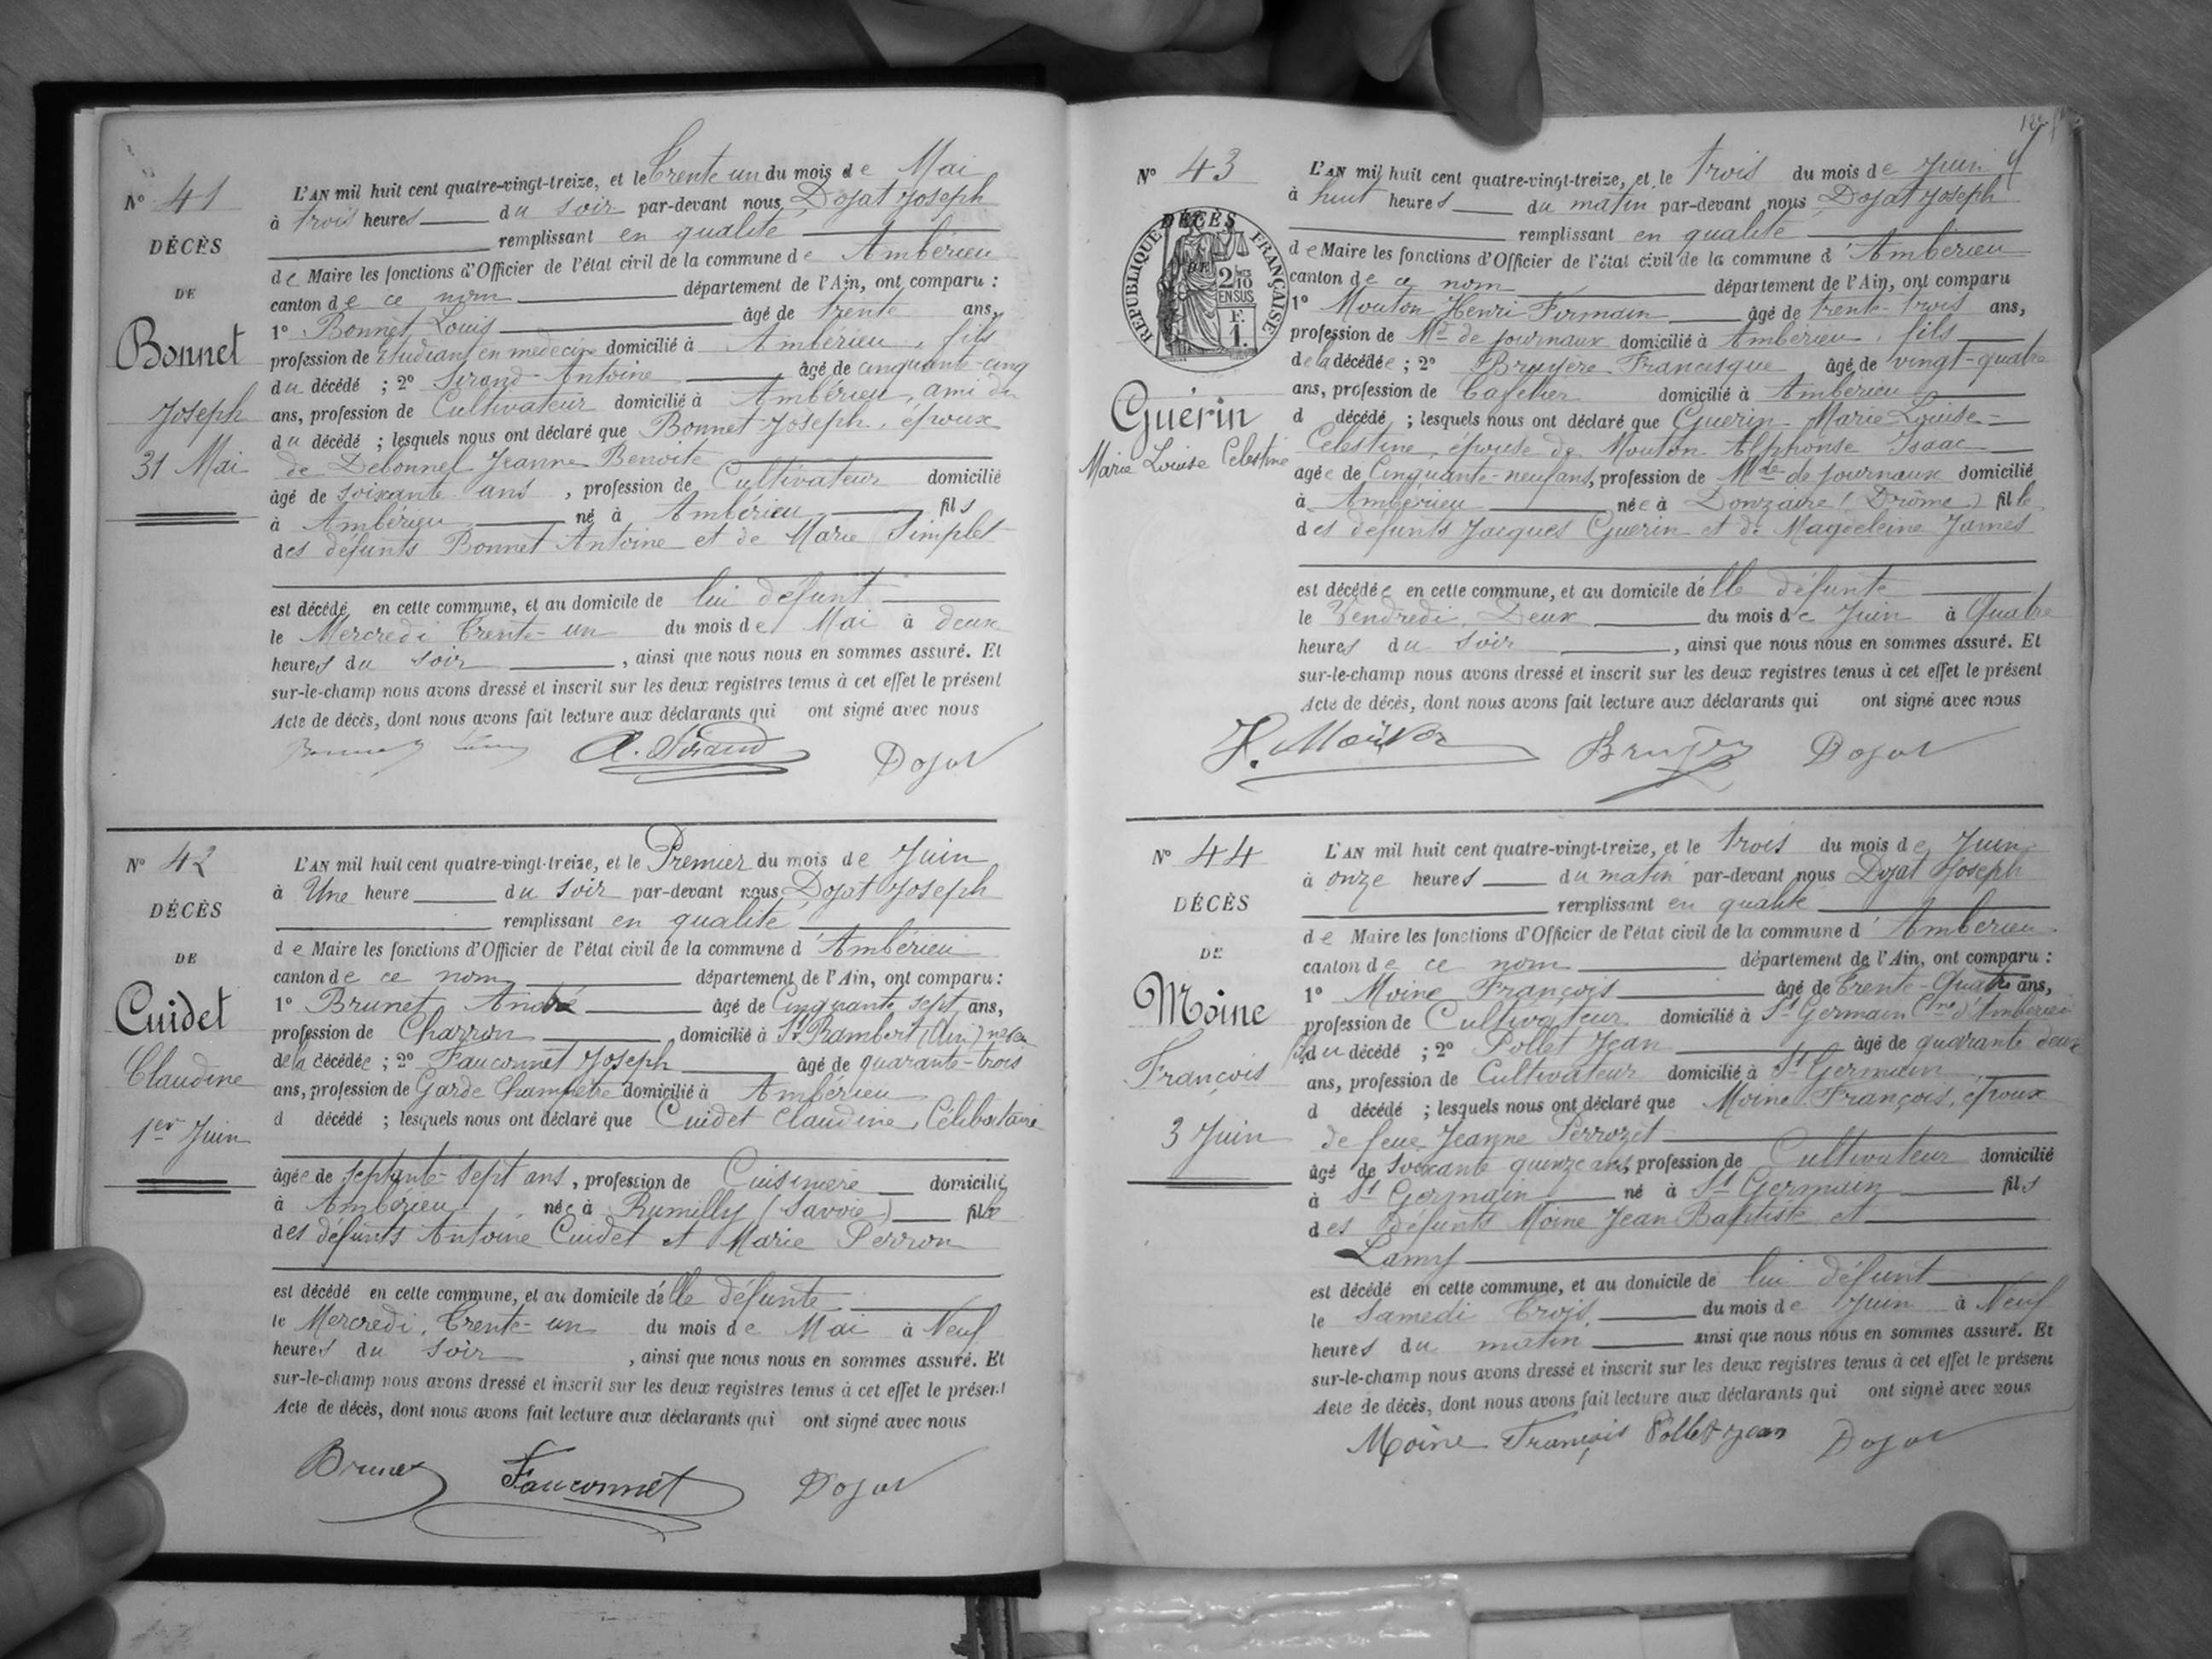 N° 41
DÉCÈS
DE
Bonnet
Joseph
31 Mai
L'AN mil huit cent quatre-vingt-treize, et le Trente un du mois de Mai
à trois heures du soir par-devant nous Dojat Joseph
remplissant en qualité
de Maire les fonctions d'Officier de l'état civil de la commune de Ambérieu
canton de ce nom département de l'Ain, ont comparu :
1° Bonnet Louis âgé de trente ans,
profession de Etudiant en medecine domicilié à Ambérieu, fils
du décédé ; 2° Sirand Antoine âgé de cinquante-cinq
ans, profession de Cultivateur domicilié à Ambérieu, ami du
du décédé ; lesquels nous ont déclaré que Bonnet Joseph, époux
de Debonnel Jeanne Benoite
âgé de soixante ans, profession de Cultivateur domicilié
à Ambérieu né à Ambérieu fils
des défunts Bonnet Antoine et de Marie Simplet
est décédé en cette commune, et au domicile de lui défunt
le Mercredi Trente-un du mois de Mai à deux
heures du soir, ainsi que nous nous en sommes assuré. Et
sur-le-champ nous avons dressé et inscrit sur les deux registres tenus à cet effet le présent
Acte de décès, dont nous avons fait lecture aux déclarants qui ont signé avec nous
A. Sirand Dojat
N° 42
DÉCÈS
DE
Cuidet
Claudine
1er Juin
L'AN mil huit cent quatre-vingt-treize, et le Premier du mois de Juin
à Une heure du soir par-devant nous Dojat Joseph
remplissant en qualité
de Maire les fonctions d'Officier de l'état civil de la commune d'Ambérieu
canton de ce nom département de l'Ain, ont comparu :
1° Brunet André âgé de Cinquante sept ans,
profession de Charron domicilié à St Rambert (Ain) neveu
de la décédée ; 2° Fauconnet Joseph âgé de quarante-trois
ans, profession de Garde Champêtre domicilié à Ambérieu
d décédé ; lesquels nous ont déclaré que Cuidet Claudine, Célibataire
âgée de septante-sept ans, profession de Cuisinière domicilié
à Ambérieu, née à Rumilly (Savoie) fille
des défunts Antoine Cuidet et Marie Perron
est décédé en cette commune, et au domicile d'elle défunte
le Mercredi, Trente-un du mois de Mai à Neuf
heures du soir, ainsi que nous nous en sommes assuré. Et
sur-le-champ nous avons dressé et inscrit sur les deux registres tenus à cet effet le présent
Acte de décès, dont nous avons fait lecture aux déclarants qui ont signé avec nous
Brunet Fauconnet Dojat
N° 43
RÉPUBLIQUE FRANÇAISE
DÉCÈS
DE
2/10
EN SUS
F.
1.
Guérin
Marie Louise Celestine
L'AN mil huit cent quatre-vingt-treize, et le trois du mois de Juin
à huit heures du matin par-devant nous Dojat Joseph
remplissant en qualité
de Maire les fonctions d'Officier de l'état civil de la commune d'Ambérieu
canton de ce nom département de l'Ain, ont comparu
1° Mouton Henri Firmain âgé de trente-trois ans,
profession de Md de journaux domicilié à Ambérieu, fils
de la décédée ; 2° Bruyère Francisque âgé de vingt-quatre
ans, profession de Cafetier domicilié à Ambérieu
d décédé ; lesquels nous ont déclaré que Guerin Marie Louise-
Celestine, épouse de Mouton Alphonse Isaac
agée de Cinquante-neuf ans, profession de Mde de journaux domicilié
à Ambérieu née à Donzaire (Drôme) fille
des defunts Jacques Guerin et de Magdeleine James
est décédée en cette commune, et au domicile d'elle défunte
le Vendredi, Deux du mois de Juin à Quatre
heures du soir, ainsi que nous nous en sommes assuré. Et
sur-le-champ nous avons dressé et inscrit sur les deux registres tenus à cet effet le présent
Acte de décès, dont nous avons fait lecture aux déclarants qui ont signé avec nous
H. Mouton Dojat
N° 44
DÉCÈS
DE
Moine
François
3 Juin
L'AN mil huit cent quatre-vingt-treize, et le trois du mois de Juin
à onze heures du matin par-devant nous Dojat Joseph
remplissant en qualité
de Maire les fonctions d'Officier de l'état civil de la commune d'Ambérieu
canton de ce nom département de l'Ain, ont comparu :
1° Moine François âgé de Trente-Quatre ans,
profession de Cultivateur domicilié à St Germain Cne d'Ambérieu
fils du décédé ; 2° Pollet Jean âgé de quarante deux
ans, profession de Cultivateur domicilié à St Germain
d décédé ; lesquels nous ont déclaré que Moine François, époux
de feue Jeanne Perrozet
âgé de Soixante quinze ans, profession de Cultivateur domicilié
à St Germain né à St Germain fils
des défunts Moine Jean Baptiste et
Lamy
est décédé en cette commune, et au domicile de lui défunt
le Samedi Trois, du mois de Juin à Neuf
heures du matin ainsi que nous nous en sommes assuré. Et
sur-le-champ nous avons dressé et inscrit sur les deux registres tenus à cet effet le présent
Acte de décès, dont nous avons fait lecture aux déclarants qui ont signé avec nous
Moine François Pollet Jean Dojat